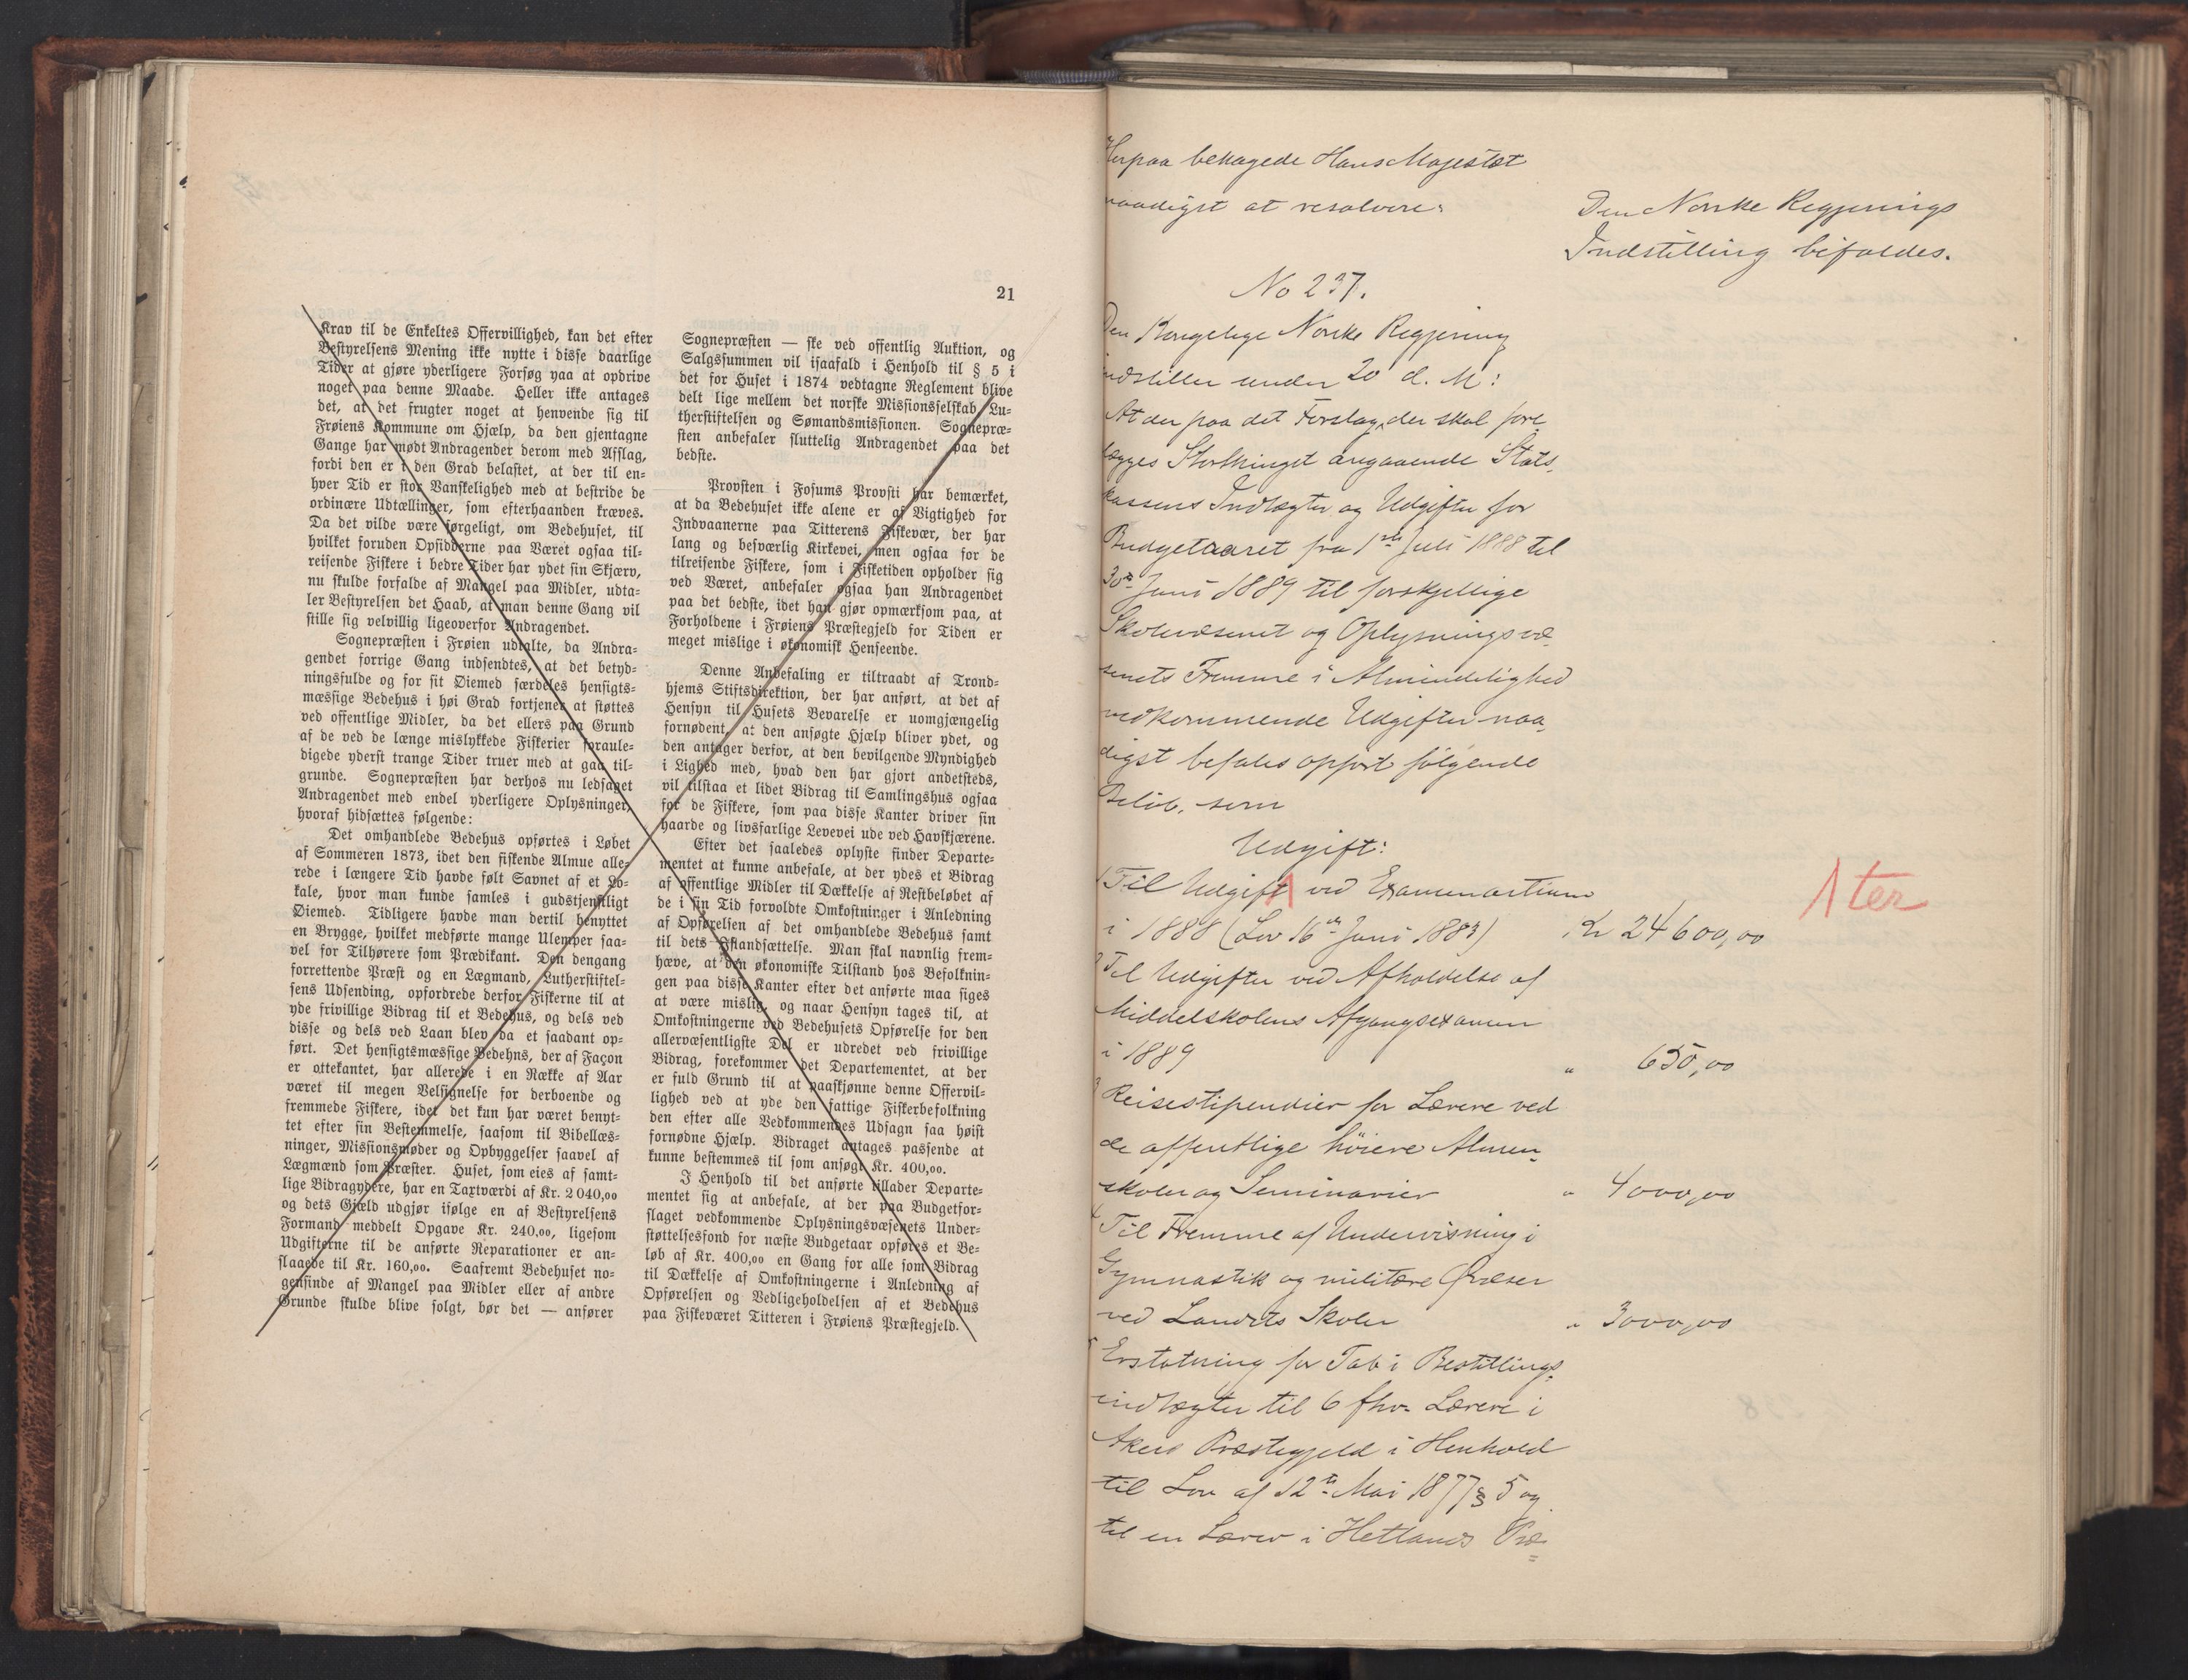 21
Krav til de Enkeltes Offervillighed, kan det efter
Bestyrelsens Mening ikke nytte i disse daarlige
Tider at gjøre yderligere Forsøg paa at opdrive
noget paa denne Maade. Heller ikke antages
det, at det frugter noget at henvende sig til
Frøiens Kommune om Hjælp, da den gjentagne
Gange har mødt Andragender derom med Afslag,
fordi den er i den Grad belastet, at der til en-
hver Tid er stor Vanskelighed med at bestride de
ordinære Udtællinger, som efterhaanden kræves.
Da det vilde være sørgeligt, om Bedehuset, til
hvilket foruden Opsidderne paa Været ogsaa til-
reisende Fiskere i bedre Tider har ydet sin Skjærv,
nu skulde forfalde af Mangel paa Midler, udta-
ler Bestyrelsen det Haab, at man denne Gang vil
stille sig velvillig ligeoverfor Andragendet.
Sognepræsten i Frøien udtalte, da Andra-
gendet forrige Gang indsendtes, at det betyd-
ningsfulde og for sit Øiemed særdeles hensigts-
mæssige Bedehus i høi Grad fortjener at støttes
ved offentlige Midler, da det ellers paa Grund
af de ved de længe mislykkede Fiskerier foraule-
digede yderst trange Tider truer med at gaa til-
grunde. Sognepræsten har derhos nu ledsaget
Andragendet med endel yderligere Oplysninger,
hvoraf hidsættes følgende:
Det omhandlede Bedehus opførtes i Løbet
af Sommeren 1873, idet den fiskende Almue alle-
rede i længere Tid havde følt Savnet af et Lo-
kale, hvor man kunde samles i gudstjenstligt
Øiemed. Tidligere havde man dertil benyttet
en Brygge, hvilket medførte mange Ulemper saa-
vel for Tilhørere som Prædikant. Den dengang
forrettende Præst og en Lægmand, Lutherstiftel-
sens Udsending, opfordrede derfor Fiskerne til at
yde frivillige Bidrag til et Bedehus, og dels ved
disse og dels ved Laan blev da et saadant op-
ført. Det hensigtsmæssige Bedehns, der af Façon
er ottekantet, har allerede i en Række af Aar
været til megen Velsignelse for derboende og
fremmede Fiskere, idet det kun har været benyt-
tet efter sin Bestemmelse, saasom til Bibellæs-
ninger, Missionsmøder og Opbyggelser saavel af
Lægmænd som Præster. Huset, som eies af samt-
lige Bidragydere, har en Taxtværdi af Kr. 2 040,00
og dets Gjæld udgjør ifølge en af Bestyrelsens
Formand meddelt Opgave Kr. 240,00, ligesom
Udgifterne til de anførte Reparationer er an-
slaaede til Kr. 160,00. Saafremt Bedehuset no-
gensinde af Mangel paa Midler eller af andre
Grunde skulde blive solgt, bør det — anfører
Sognepræsten — ske ved offentlig Auktion, og
Salgssummen vil isaafald i Henhold til § 5 i
det for Huset i 1874 vedtagne Reglement blive
delt lige mellem det norske Missionsselskab, Lu-
therstiftelsen og Sømandsmissionen. Sognepræ-
sten anbefaler sluttelig Andragendet paa det
bedste.
Provsten i Fosums Provsti har bemærket,
at da Bedehuset ikke alene er af Vigtighed for
Indvaanerne paa Titterens Fiskevær, der har
lang og besværlig Kirkevei, men ogsaa for de
tilreisende Fiskere, som i Fisketiden opholder sig
ved Været, anbefaler ogsaa han Andragendet
paa det bedste, idet han gjør opmærksom paa, at
Forholdene i Frøiens Præstegjeld for Tiden er
meget mislige i økonomisk Henseende.
Denne Anbefaling er tiltraadt af Trond-
hjems Stiftsdirektion, der har anført, at det af
Hensyn til Husets Bevarelse er uomgjængelig
fornødent, at den ansøgte Hjælp bliver ydet, og
den antager derfor, at den bevilgende Myndighed
i Lighed med, hvad den har gjort andetsteds,
vil tilstaa et lidet Bidrag til Samlingshus ogsaa
for de Fiskere, som paa disse Kanter driver sin
haarde og livsfarlige Levevei ude ved Havskjærene.
Efter det saaledes oplyste finder Departe-
mentet at kunne anbefale, at der ydes et Bidrag
af offentlige Midler til Dækkelse af Restbeløbet af
de i sin Tid forvoldte Omkostninger i Anledning
af Opførelsen af det omhandlede Bedehus samt
til dets Istandsættelse. Man skal navnlig frem-
hæve, at den økonomiske Tilstand hos Befolknin-
gen paa disse Kanter efter det anførte maa siges
at være mislig, og naar Hensyn tages til, at
Omkostningerne ved Bedehusets Opførelse for den
allervæsentligste Del er udredet ved frivillige
Bidrag, forekommer det Departementet, at der
er fuld Grund til at paaskjønne denne Offervil-
lighed ved at yde den fattige Fiskerbefolkning
den efter alle Vedkommendes Udsagn saa høist
fornødne Hjælp. Bidraget antages passende at
kunne bestemmes til som ansøgt Kr. 400,00.
I Henhold til det anførte tillader Departe-
mentet sig at anbefale, at der paa Budgetfor-
slaget vedkommende Oplysningsvæsenets Under-
støttelsesfond for næste Budgetaar opføres et Be-
løb af Kr. 400,00 en Gang for alle som Bidrag
til Dækkelse af Omkostningerne i Anledning af
Opførelsen og Vedligeholdelsen af et Bedehus
paa Fiskeværet Titteren i Frøiens Præstegjeld.
Herpaa behagede Hans Majestæt
naadigst at resolvere:
Den Norske Regjerings
Indstilling bifaldes.
No 237.
Den Kongelige Norske Regjering
indstiller under 20 d. M:
At der paa det Forslag, der skal fore
lægges Storthinget angaaende Stats,
kassens Indtægter og Udgifter for
Budgetaaret fra 1ste Juli 1888 til
30te Juni 1889 til forskjellige
Skolevæsenet og Oplysningsvæ
senets Fremme i Almindelighed
vedkommende Udgifter naa
digst befales opført følgende
Beløb, som
Udgift:
1 Til Udgift ved Examenartium
1 ter
i 1888 (Lov 16de Juni 1883) Kr 24600,00
2 Til Udgifter ved Afholdelse af
Middelskolens Afgangsexamen
i 1889 " 650,00
3 Reisestipendier for Lærere ved
de offentlige høiere Almen,
skoler og Seminarier " 4000,00
4 Til Fremme af Undervisning i
Gymnastik og militære Øvelser
ved Landets Skoler " 3000,00
5 Erstatning for Tab i Bestillings,
indtægter til 6 fhv. Lærere i
Akers Præstegjeld i Henhold
til Lov af 12te Mai 1877 § 5 og
til en Lærer i Hetlands Præ=